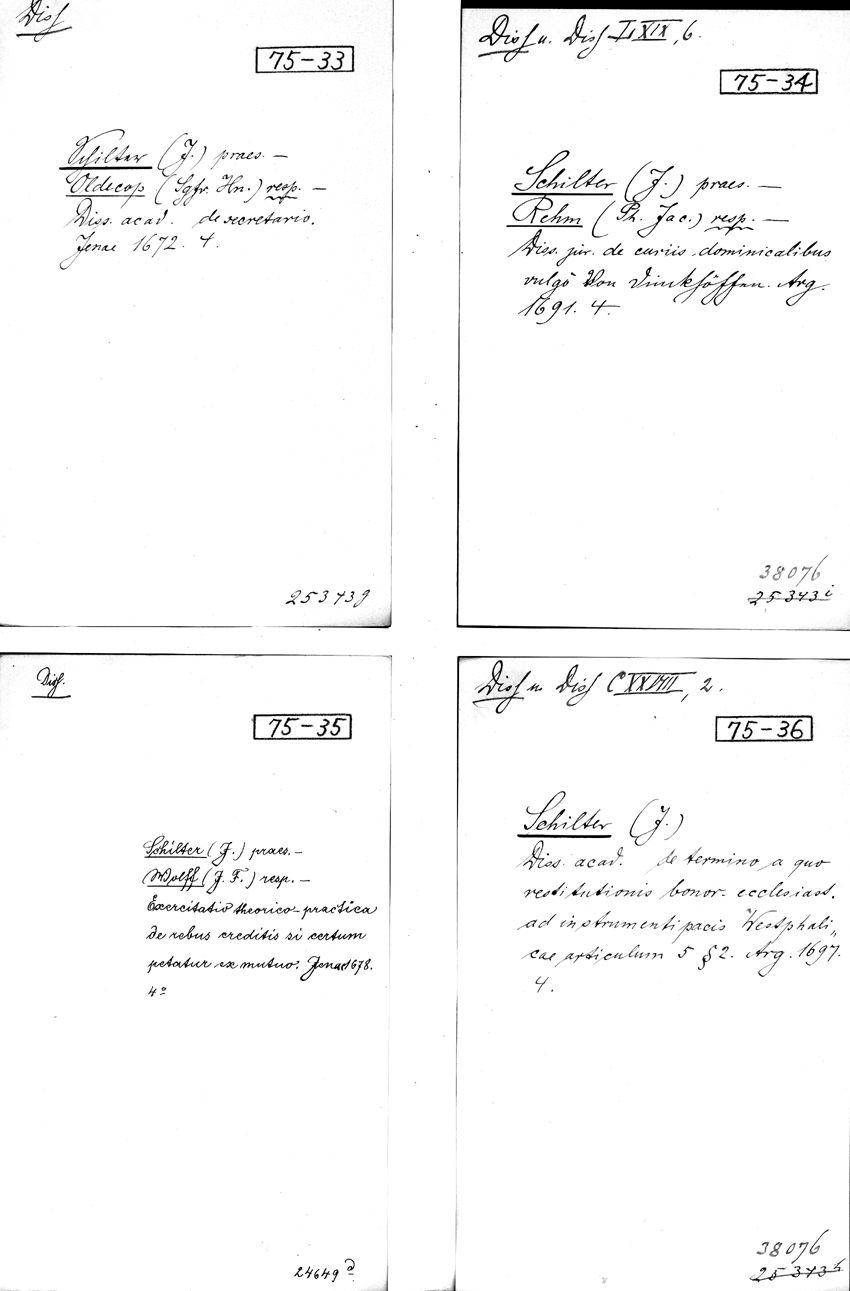 Diss
75-33
Schilter (J.) praes. —
Oldecop (Sgfr. Hn.) resp. —
Diss. acad. de secretario.
Jenae 1672. 4.
25343g
Diss u. Diss LXIX, 6.
75-34
Schilter (J.) praes. —
Rehm (Ph. Jac.) resp. —
Diss. jur. de curiis dominicalibus
vulgò Von Dinckhöffen. Arg.
1691. 4.
38076
25343i
Diss.
75-35
Schilter (J.) praes. —
Wolff (J. F.) resp. —
Exercitatio theorico-practica
de rebus creditis si certum
petatur ex mutuo. Jenae 1678.
4o
24649d
Diss u. Diss CXXVIII, 2.
75-36
Schilter (J.)
Diss. acad. de termino a quo
restitutionis bonor. ecclesiast.
ad instrumenti pacis Westphali„
cae articulum 5 § 2. Arg. 1697.
4.
38076
25343h